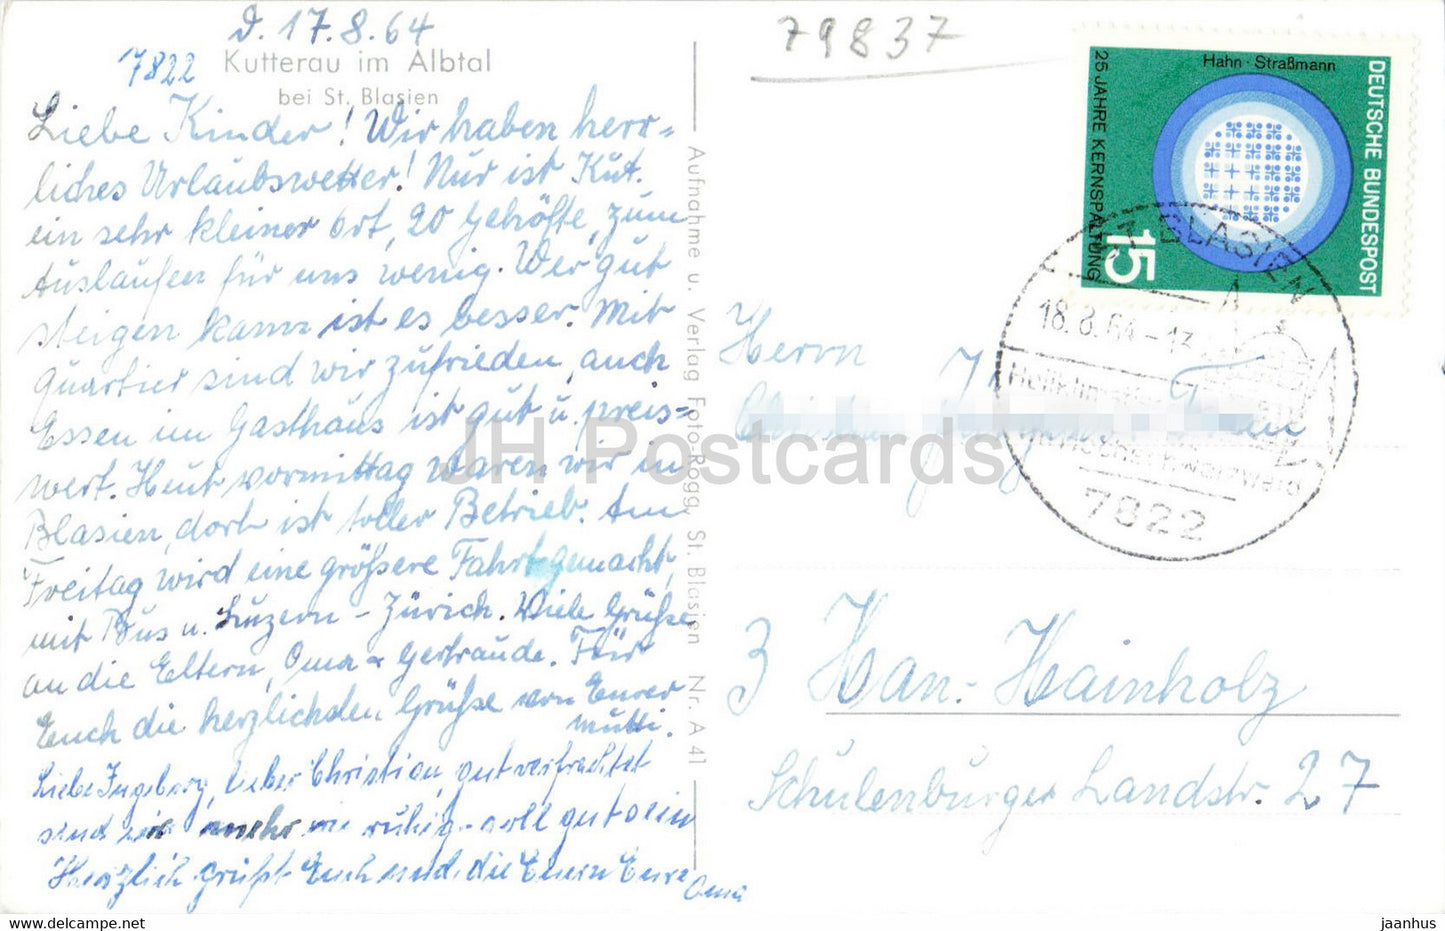 d. 17.8.64
7822 Kutterau im Albtal
bei St. Blasien
Liebe Kinder! Wir haben herr-
liches Urlaubswetter! Nur ist Kut.
ein sehr kleiner Ort, 20 Gehöfte, zum
Auslaufen für uns wenig. Wer gut
steigen kann ist es besser. Mit
Quartier sind wir zufrieden, auch
Essen im Gasthaus ist gut u. preis=
wert. Heut vormittag waren wir in
Blasien, dort ist toller Betrieb. Am
Freitag wird eine größere Fahrt gemacht,
mit Bus n. Luzern - Zürich. Viele Grüße
an die Eltern, Oma & Gertraude. Für
Euch die herzlichsten Grüße von Eurer
Mutti.
Liebe Ingeborg, lieber Christian, gut verfrachtet
sind wir mehr ruhig - soll gut sein
Herzlich grüßt Euch und die Eltern Eure
Oma
Aufnahme u. Verlag Foto-Rogg, St. Blasien Nr. A 41
79837
Hahn · Straßmann
25 JAHRE KERNSPALTUNG
DEUTSCHE BUNDESPOST
15
ST. BLASIEN
18.8.64-13
7822
Herrn
3 Han.- Hainholz
Schulenburger Landstr. 27
JH Postcards
jaanhus | www.delcampe.net